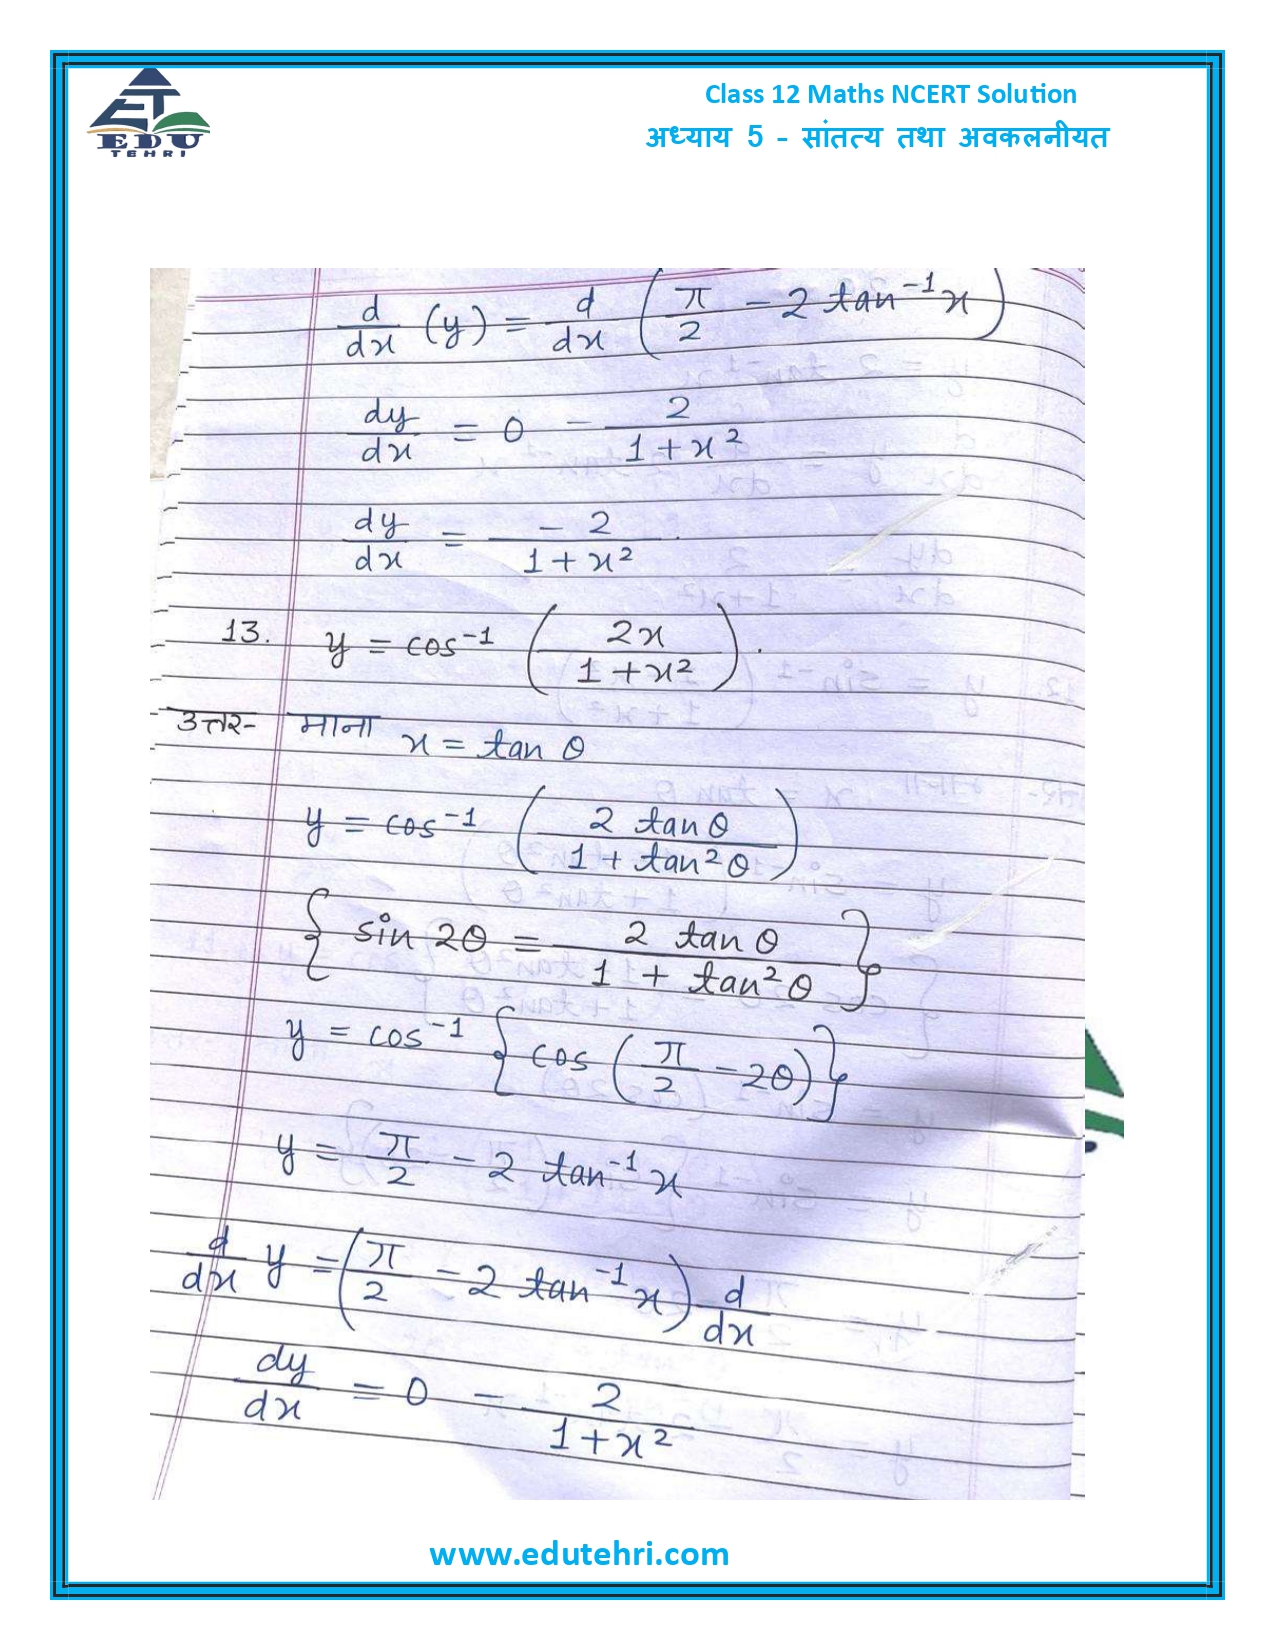 EDU
TEHRI
Class 12 Maths NCERT Solution
अध्याय 5 - सांतत्य तथा अवकलनीयत
d/dx (y) = d/dx (π/2 - 2 tan⁻¹x)
dy/dx = 0 - 2/(1+x²)
dy/dx = -2/(1+x²).
13. y = cos⁻¹ (2x/(1+x²)).
उत्तर- माना x = tan θ
y = cos⁻¹ (2 tanθ/(1 + tan²θ))
{sin 2θ = 2 tanθ/(1 + tan²θ)}
y = cos⁻¹ {cos (π/2 - 2θ)}
y = π/2 - 2 tan⁻¹x
d/dx y = (π/2 - 2 tan⁻¹x) d/dx
dy/dx = 0 - 2/(1+x²)
www.edutehri.com